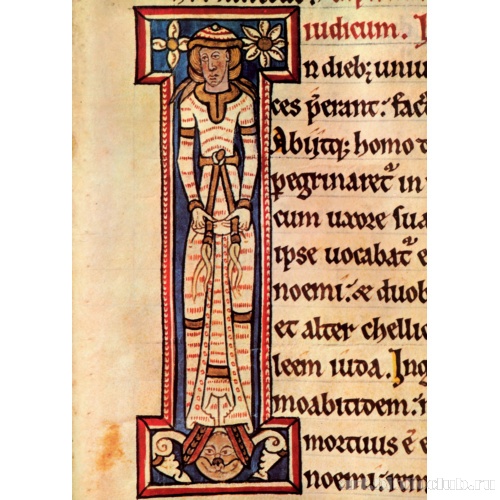 iudicum. I
n dieb; uniu
ces p̄erant. fac̄
Abiitq; homo
pegrinaret᷑ in
cum uxore sua
ipse uocabat᷑ e
noemi. & duob
et alter chelli
leem iuda. Ing
moabitidem.
mortuus ē e
noemi. rem